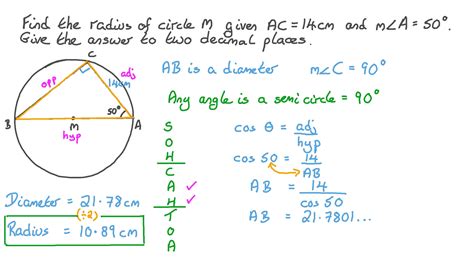 Find the radius of circle M given AC = 14cm and m∠A = 50°.
Give the answer to two decimal places.
C
opp
adj
14cm
50°
B
M
A
hyp
AB is a diameter m∠C = 90°
Any angle is a semi circle = 90°
S
O
H
C
A ✓
H ✓
T
O
A
cos θ = adj
hyp
cos 50 = 14
AB
AB = 14
cos 50
AB = 21.7801...
Diameter = 21.78 cm
(÷2)
Radius = 10.89 cm